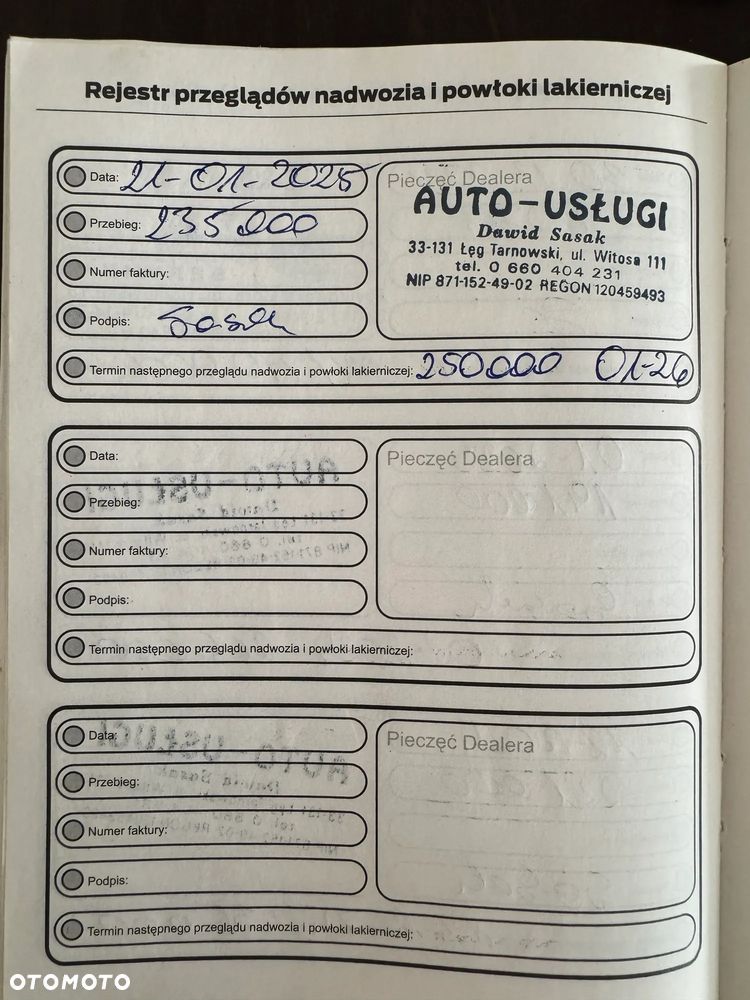 Rejestr przeglądów nadwozia i powłoki lakierniczej
Data: 21-01-2025
Pieczęć Dealera
AUTO-USŁUGI
Dawid Sasak
33-131 Łęg Tarnowski, ul. Witosa 111
tel. 0 660 404 231
NIP 871-152-49-02 REGON 120459493
Przebieg: 235000
Numer faktury:
Podpis: Sasak
Termin następnego przeglądu nadwozia i powłoki lakierniczej: 250000 01-26
Data:
Pieczęć Dealera
Przebieg:
Numer faktury:
Podpis:
Termin następnego przeglądu nadwozia i powłoki lakierniczej:
Data:
Pieczęć Dealera
Przebieg:
Numer faktury:
Podpis:
Termin następnego przeglądu nadwozia i powłoki lakierniczej:
OTOMOTO